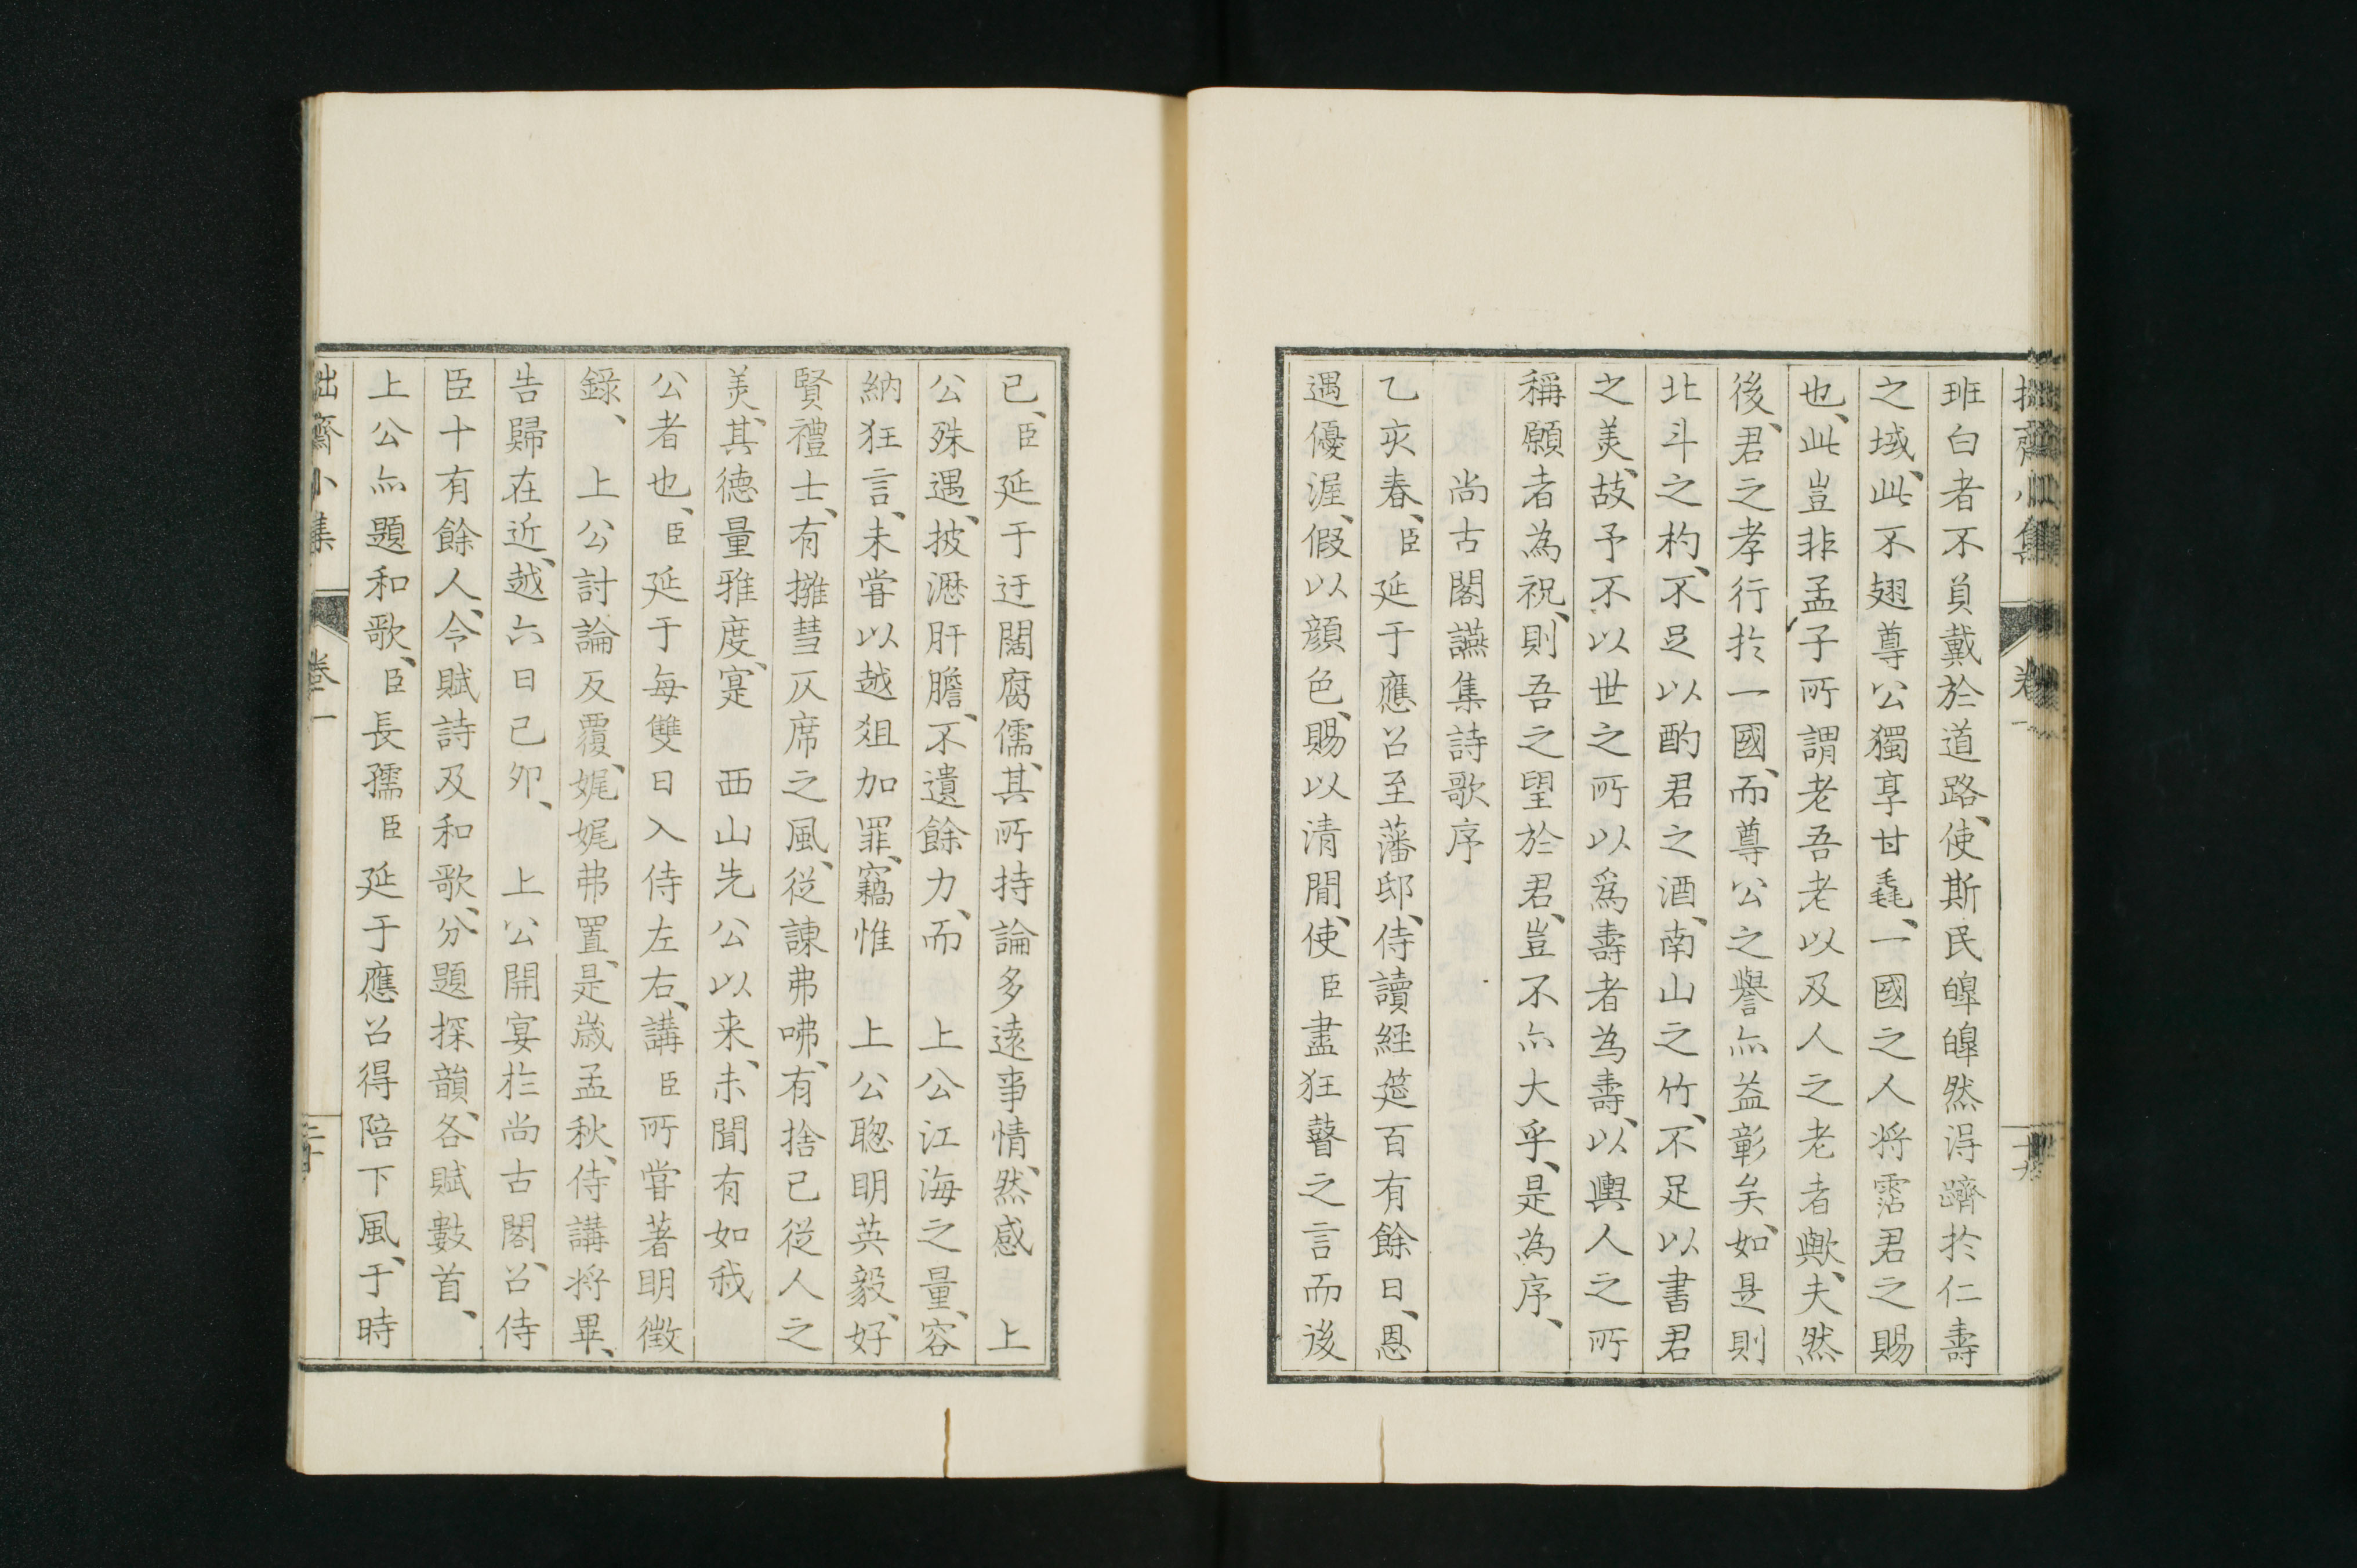 拙齋小集 卷一 十九
班白者不負戴於道路、使斯民皥皥然得躋於仁壽
之域、此不翅尊公獨享甘毳、一國之人將霑君之賜
也、此豈非孟子所謂老吾老以及人之老者歟、夫然
後、君之孝行於一國、而尊公之譽亦益彰矣、如是則
北斗之杓、不足以酌君之酒、南山之竹、不足以書君
之美、故予不以世之所以爲壽者為壽、以輿人之所
稱願者為祝、則吾之望於君、豈不亦大乎、是為序、
尚古閣讌集詩歌序
乙亥春、臣延于應召至藩邸、侍讀經筵百有餘日、恩
遇優渥、假以顔色、賜以清閒、使臣盡狂瞽之言而後
已、臣延于迂闊腐儒、其所持論多遠事情、然感　上
公殊遇、披瀝肝膽、不遺餘力、而　上公江海之量、容
納狂言、未嘗以越爼加罪、竊惟　上公聰明英毅、好
賢禮士、有擁彗仄席之風、從諫弗咈、有捨己從人之
美、其德量雅度、寔　西山先公以来、未聞有如我
公者也、臣延于每雙日入侍左右、講臣所嘗著明徴
錄、　上公討論反覆、娓娓弗置、是歳孟秋、侍講將畢、
告歸在近、越六日己夘、　上公開宴於尚古閣、召侍
臣十有餘人、令賦詩及和歌、分題探韻、各賦數首、
上公亦題和歌、臣長孺臣延于應召得陪下風、于時
拙齋小集 卷一 二十